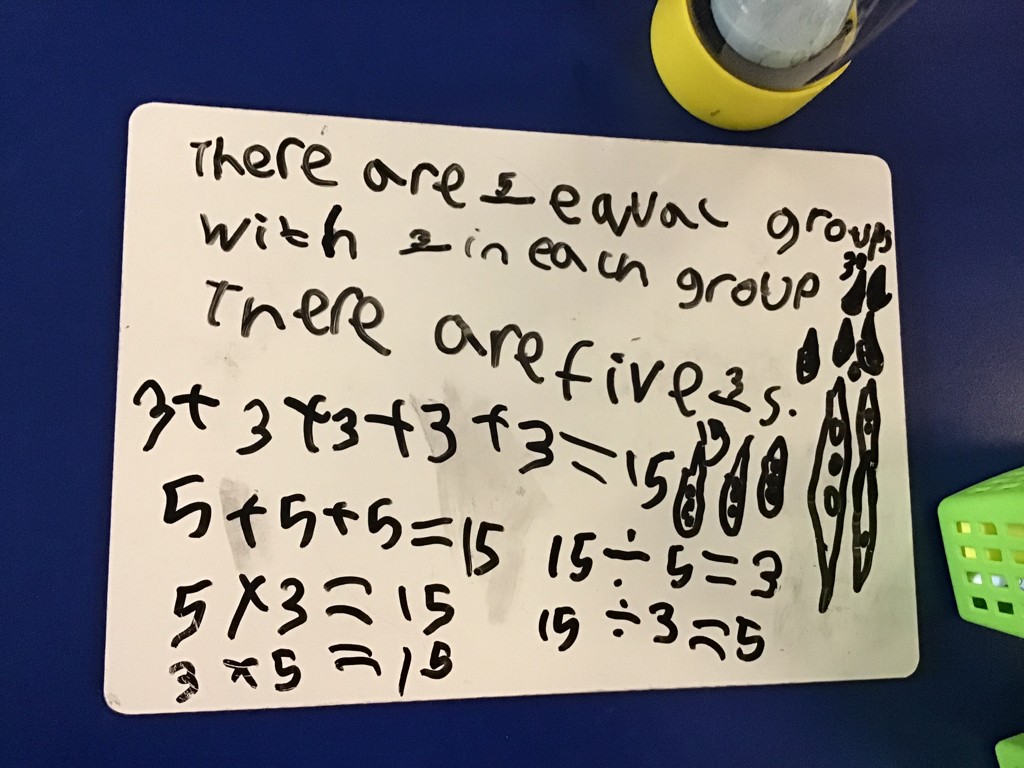 There are 5 equal groups
with 3 in each group
There are five 3s.
3+3+3+3+3=15
5+5+5=15
15÷5=3
5×3=15
15÷3=5
3×5=15